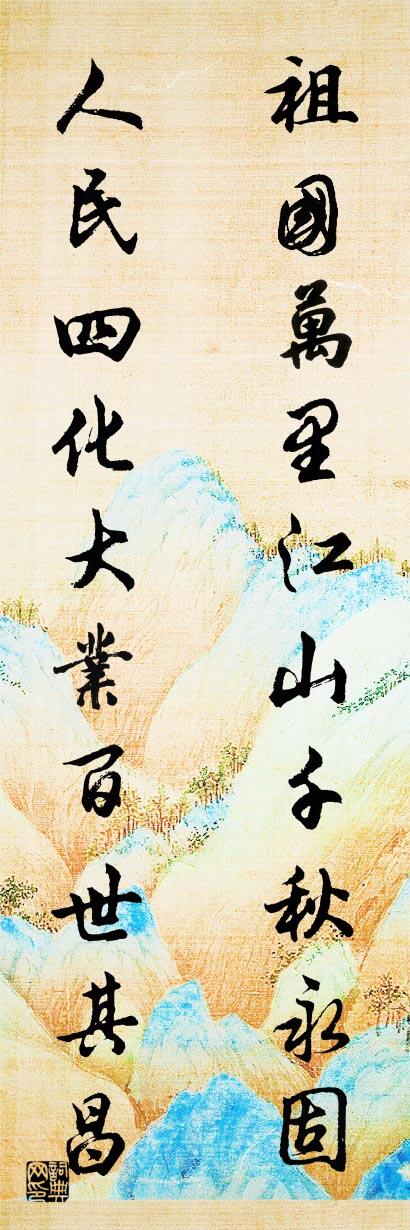 祖國萬里江山千秋永固
人民四化大業百世其昌
詞典網